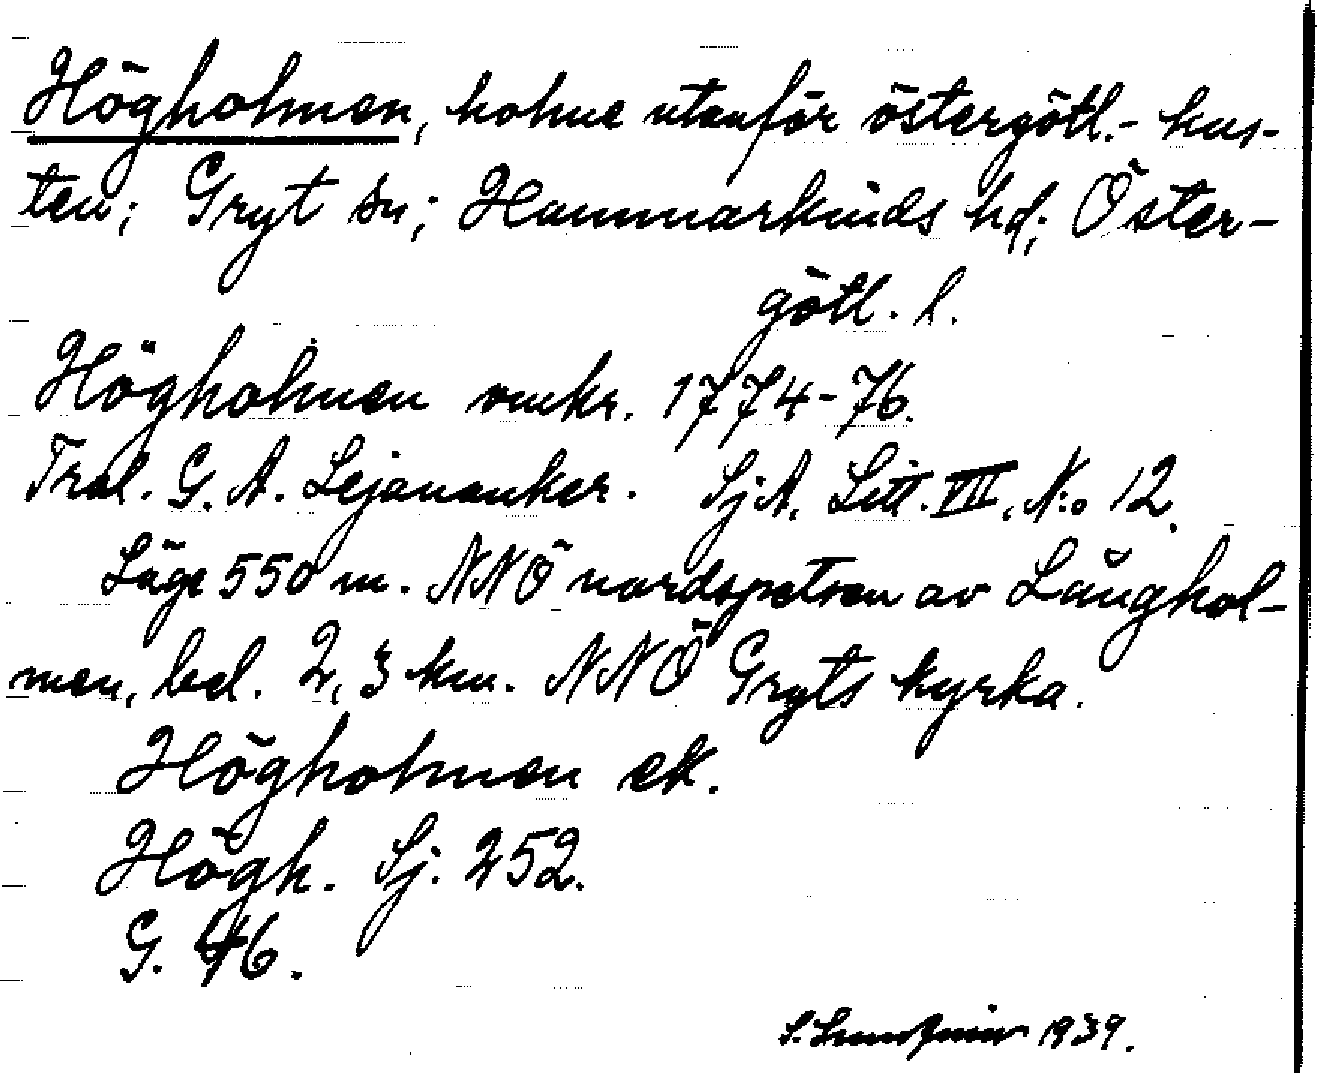 Högholmen, holme utanför östergötl.- kus-
ten; Gryt sn; Hammarkinds hd; Öster-
götl. l.
Högholmen omkr. 1774-76.
Tral. G. A. Lejonanker. SjA, Litt. VII, N:o 12.
Läge 550 m. NNÖ nordspetsen av Långhol-
men, bel. 2,3 km. NNÖ Gryts kyrka.
Högholmen ek.
Högh. Sj. 252.
G. 46.
S. 1939.